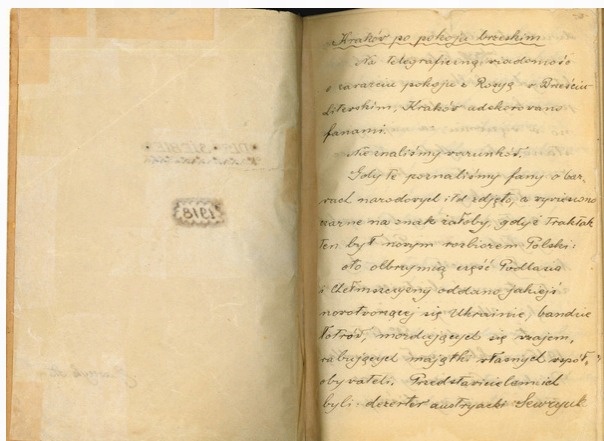 Kraków po pokoju brzeskim
Na telegraficzną wiadomość
o zawarciu pokoju z Rosyą w Brześciu
Litewskim, Kraków udekorowano
fanami.
Nie znaliśmy warunków.
Gdy te poznaliśmy fany o bar-
wach narodowych itd zdjęto, a wywieszono
czarne na znak żałoby, gdyż Traktak
ten był nowym rozbiorem Polski:
oto olbrzymią część Podlasia
i Chełmszczyzny oddano jakiejś
nowotworzącej się Ukrainie, bandzie
łotrów, mordujących się wzajem,
rabujących majątki własnych współ-
obywateli. Przedstawicielem ich
byli: dezerter austryacki Sewryuk
1918